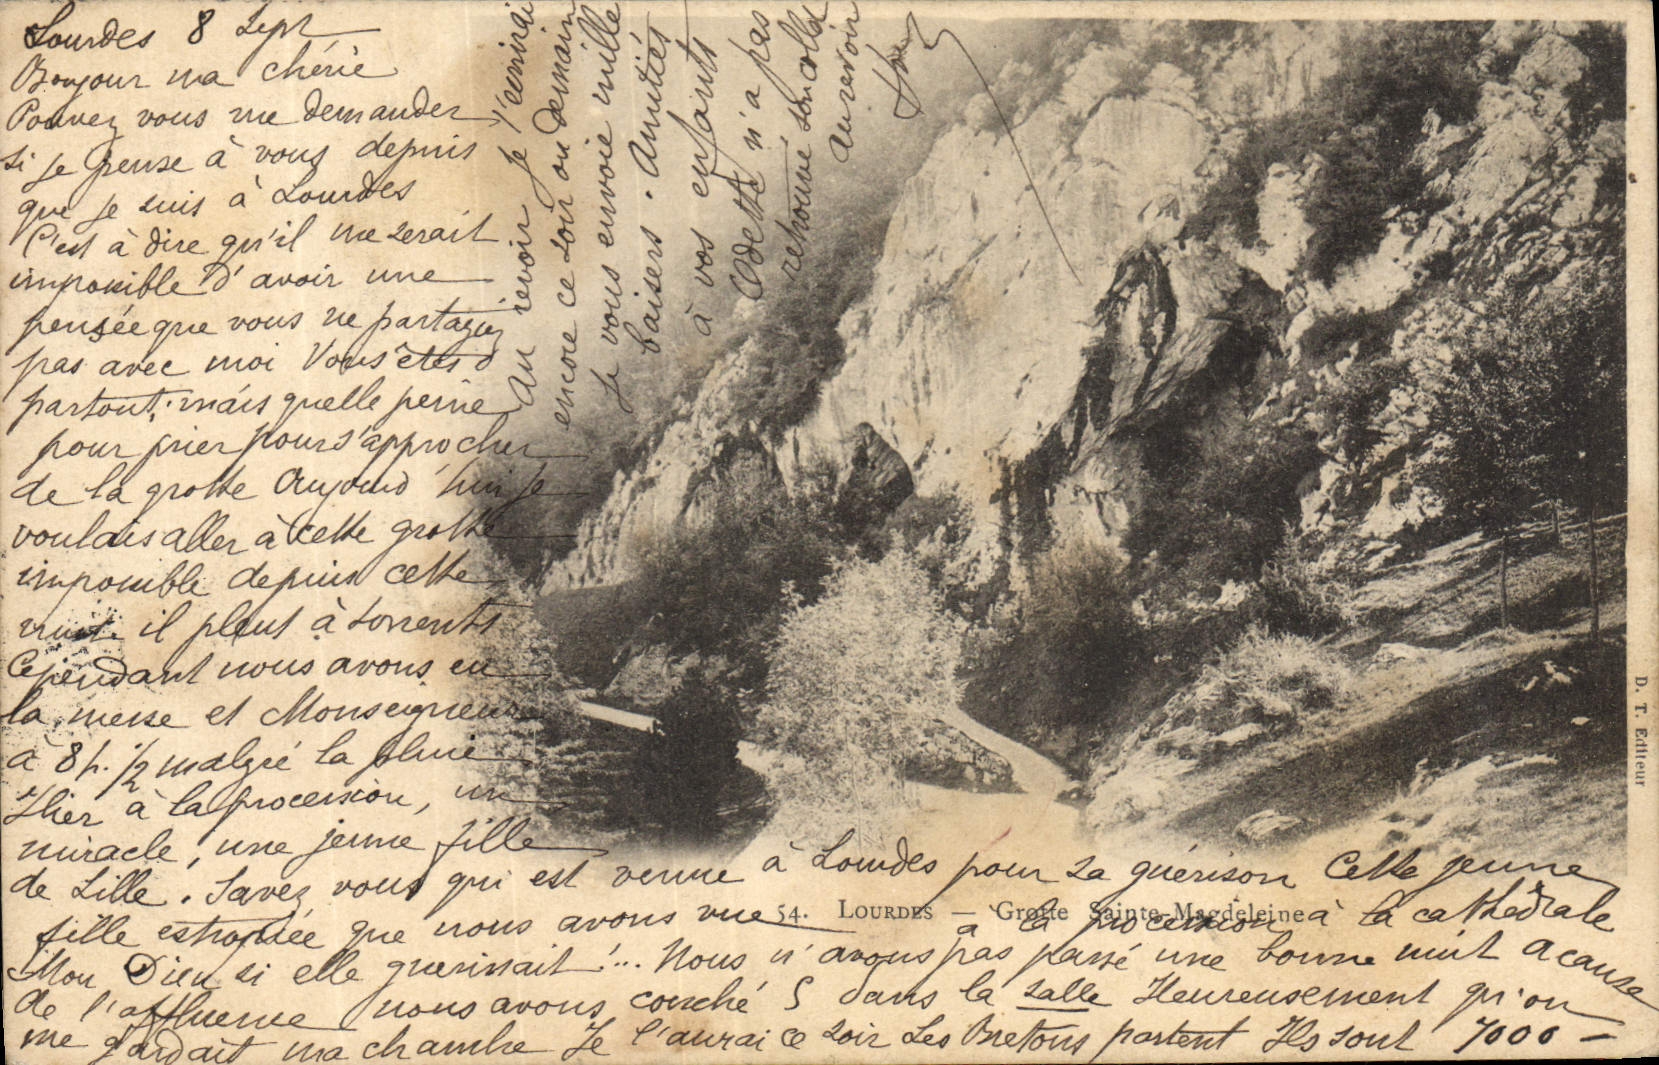 Lourdes 8 Sept
Bonjour ma chérie
Pouvez vous me demander
si je pense à vous depuis
que je suis à Lourdes
C'est à dire qu'il me serait
impossible d'avoir une
pensée que vous ne partagiez
pas avec moi Vous êtes
partout, mais quelle peine
pour prier pour s'approcher
de la grotte Aujourd'hui je
voulais aller à cette grotte
impossible depuis cette
nuit il pleut à torrents
Cependant nous avons eu
la messe et Monseigneur
à 8h. 1/2 malgré la pluie
Hier à la procession, un
miracle, une jeune fille
de Lille. Savez vous qui est venue à Lourdes pour sa guérison Cette jeune
fille estropiée que nous avons vue à la procession à la cathédrale
Mon Dieu si elle guérissait!... Nous n'avons pas passé une bonne nuit à cause
de l'affluence nous avons couché 5 dans la salle Heureusement qu'on
me gardait ma chambre Je l'aurai ce soir Les Bretons partent Ils sont 7000 –
Au revoir je l'écrirai
encore ce soir ou demain
Je vous envoie mille
baisers. Amitiés
à vos enfants
Odette n'a pas
retrouvé son
au revoir
54. LOURDES — Grotte Sainte-Magdeleine
D. T. Editeur